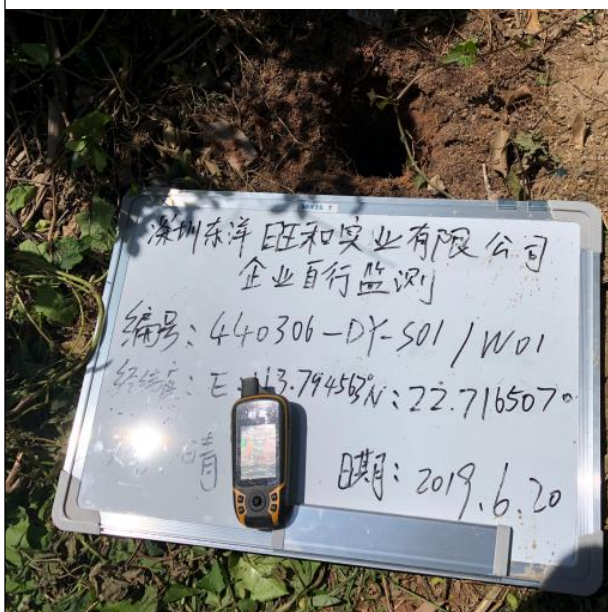 深圳东洋旺和实业有限公司
企业自行监测
编号:440306-DY-S01/W01
经纬度:E:113.79456°N:22.716507°
晴
日期:2019.6.20